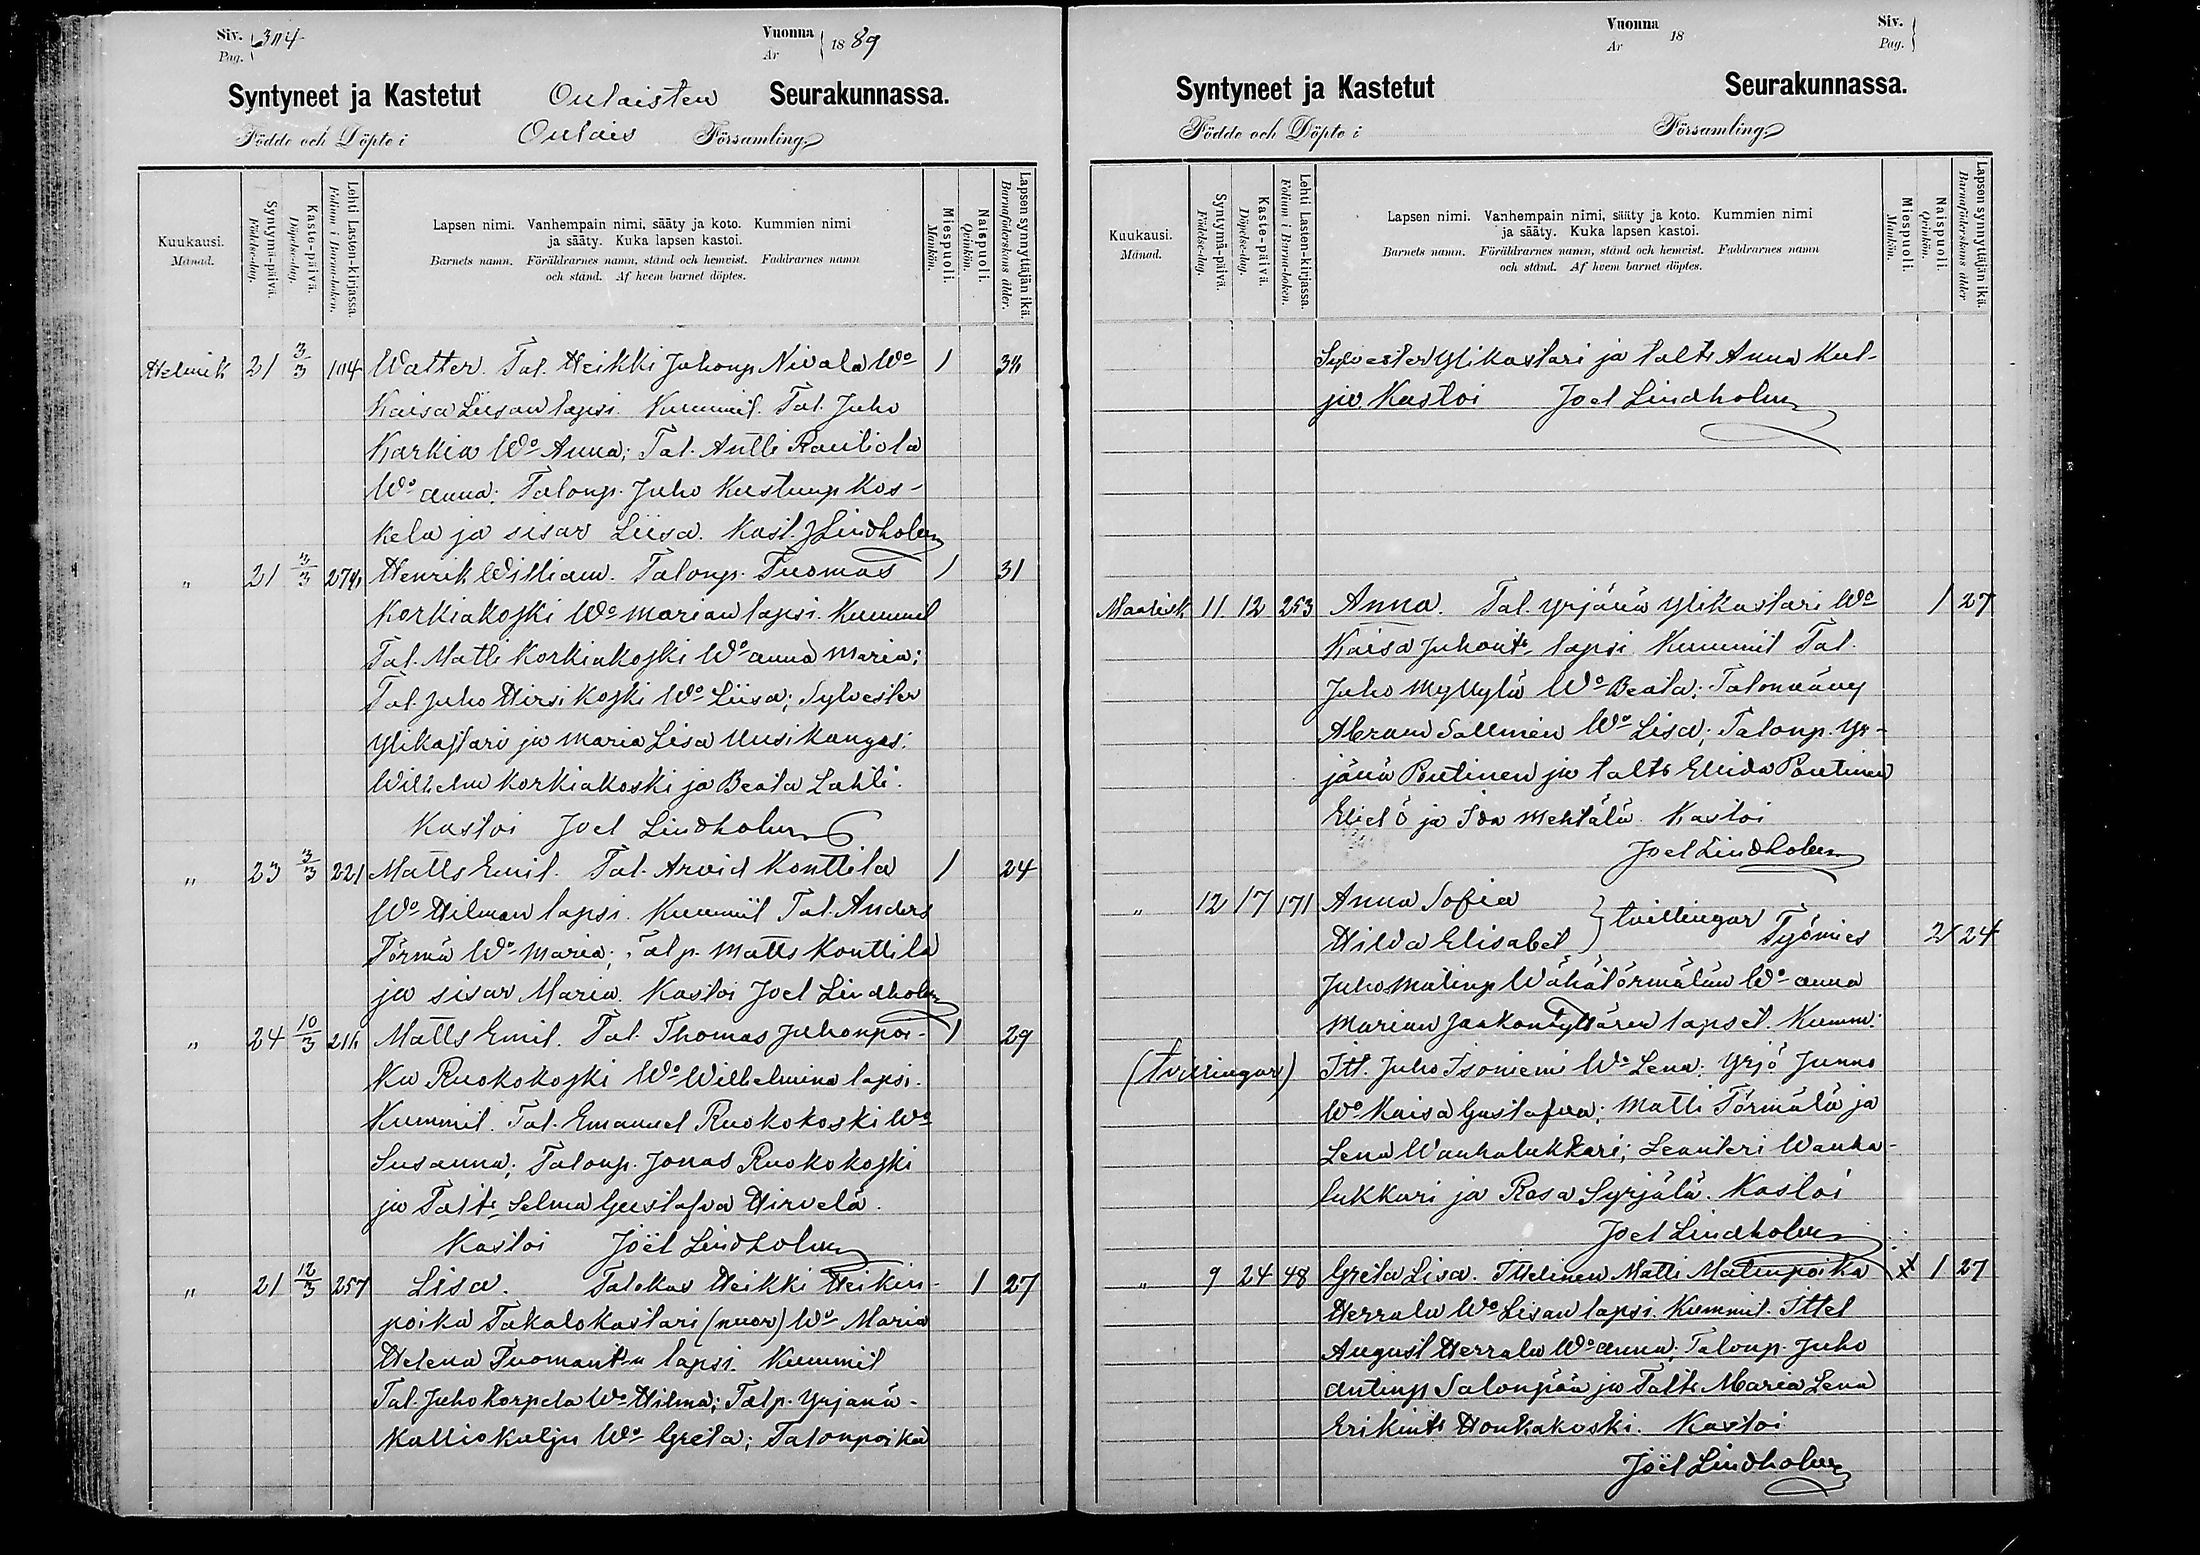 Siv. 304
Pag.
Vuonna 1889
År
Syntyneet ja Kastetut Oulaisten Seurakunnassa.
Födde och Döpte i Oulais Församling
Kuukausi. Månad.
Syntymä-päivä. Födelse-dag.
Kaste-päivä. Döpelse-dag.
Lehti Lasten-kirjassa. Folium i Barna-boken.
Lapsen nimi. Vanhempain nimi, sääty ja koto. Kummien nimi
ja sääty. Kuka lapsen kastoi.
Barnets namn. Föräldrarnes namn, stånd och hemvist. Faddrarnes namn
och stånd. Af hvem barnet döptes.
Miespuoli. Mankön.
Naispuoli. Qvinkön.
Lapsen synnyttäjän ikä. Barnaföderskans ålder.
Helmik 21 3/3 104 Walter. Tal. Heikki Juhonp Nivala Wo 1 36
Kaisa Liisan lapsi. Kummit. Tal. Juho
Karkia Wo Anna; Tal. Antti Rautiola
Wo anna; Talonp. Juho Kustunp Kos-
kela ja sisar Liisa. Kast. J Lindholm
" 21 3/3 276 Henrik William. Talonp. Tuomas 1 31
Korkiakoski Wo Marian lapsi. Kummit
Tal. Matti Korkiakoski Wo anna Maria;
Tal. Juho Hirsikoski Wo Liisa; Sylvester
Ylikastari ja Maria Lisa Uusikangas;
Wilhelm Korkiakoski ja Beata Lahti.
Kastoi Joel Lindholm
" 23 3/3 221 Matts Emil. Tal. Arvid Konttila 1 24
Wo Hilman lapsi. Kummit Tal. Anders
Törmä Wo Maria; Talp. Matts Konttila
ja sisar Maria. Kastoi Joel Lindholm
" 24 10/3 216 Matts Emil. Tal. Thomas Juhonpoi- 1 29
ka Ruokokoski Wo Wilhelmina lapsi.
Kummit. Tal. Emanuel Ruokokoski Wo
Susanna; Talonp. Jonas Ruokokoski
ja Taltr Selma Gustafva Hirvelä.
Kastoi Joël Lindholm
" 21 12/3 257 Lisa. Talokas Heikki Heikin- 1 27
poika Takalokastari (nuor) Wo Maria
Helena Tuomant:n lapsi. Kummit
Tal. Juho Korpela Wo Hilma; Talp. Yrjänä
Kalliokulju Wo Greta; Talonpoika
Vuonna 18
År
Siv.
Pag.
Syntyneet ja Kastetut Seurakunnassa.
Födde och Döpte i Församling
Kuukausi. Månad.
Syntymä-päivä. Födelse-dag.
Kaste-päivä. Döpelse-dag.
Lehti Lasten-kirjassa. Folium i Barna-boken.
Lapsen nimi. Vanhempain nimi, sääty ja koto. Kummien nimi
ja sääty. Kuka lapsen kastoi.
Barnets namn. Föräldrarnes namn, stånd och hemvist. Faddrarnes namn
och stånd. Af hvem barnet döptes.
Miespuoli. Mankön.
Naispuoli. Qvinkön.
Lapsen synnyttäjän ikä. Barnaföderskans ålder.
Sylvester Ylikastari ja taltr Anna Kul-
ju. Kastoi Joel Lindholm
Maalisk 11. 12 253 Anna. Tal. Yrjänä Ylikastari Wo 1 27
Kaisa Juhontr lapsi Kummit Tal.
Juho Myllylä Wo Beata; Talonvävy
Abram Sallinen Wo Lisa; Talonp. Yr-
jänä Pontinen ja taltr Eliida Pontinen
ja Ida Mehtälä. Kastoi
Joel Lindholm
" 12 17 171 Anna Sofia
Hilda Elisabet } tvillingar Työmies 2 24
Juho Matinp Wähätörmälän Wo anna
Marian Jaakontyttären lapset. Kumm:
(tvillingar) Itt. Juho Isoniemi Wo Lena; Yrjö Junno
Wo Kaisa Gustafva; Matti Törmälä ja
Lena Wanhalukkari; Leanteri Wanha-
lukkari ja Rosa Syrjälä. Kastoi
Joel Lindholm
" 9 24 48 Greta Lisa. Ittelinen Matti Matinpoika x 1 27
Herrala Wo Lisan lapsi. Kummit. Ittel
August Herrala Wo anna; Talonp. Juho
antinp Salonpää ja Taltr Maria Lena
Erikintr Honkakoski. Kastoi
Joël Lindholm